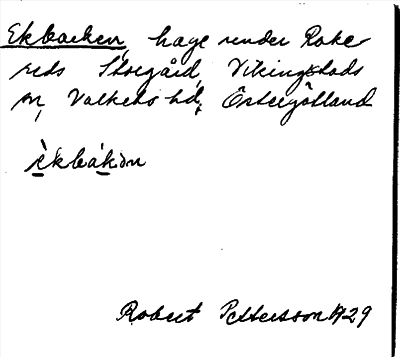 Ekbacken, hage under Rake-
reds Storgård, Vikingstads
sn, Valkebo hd, Östergötland
èkbákən
Robert Pettersson 1929